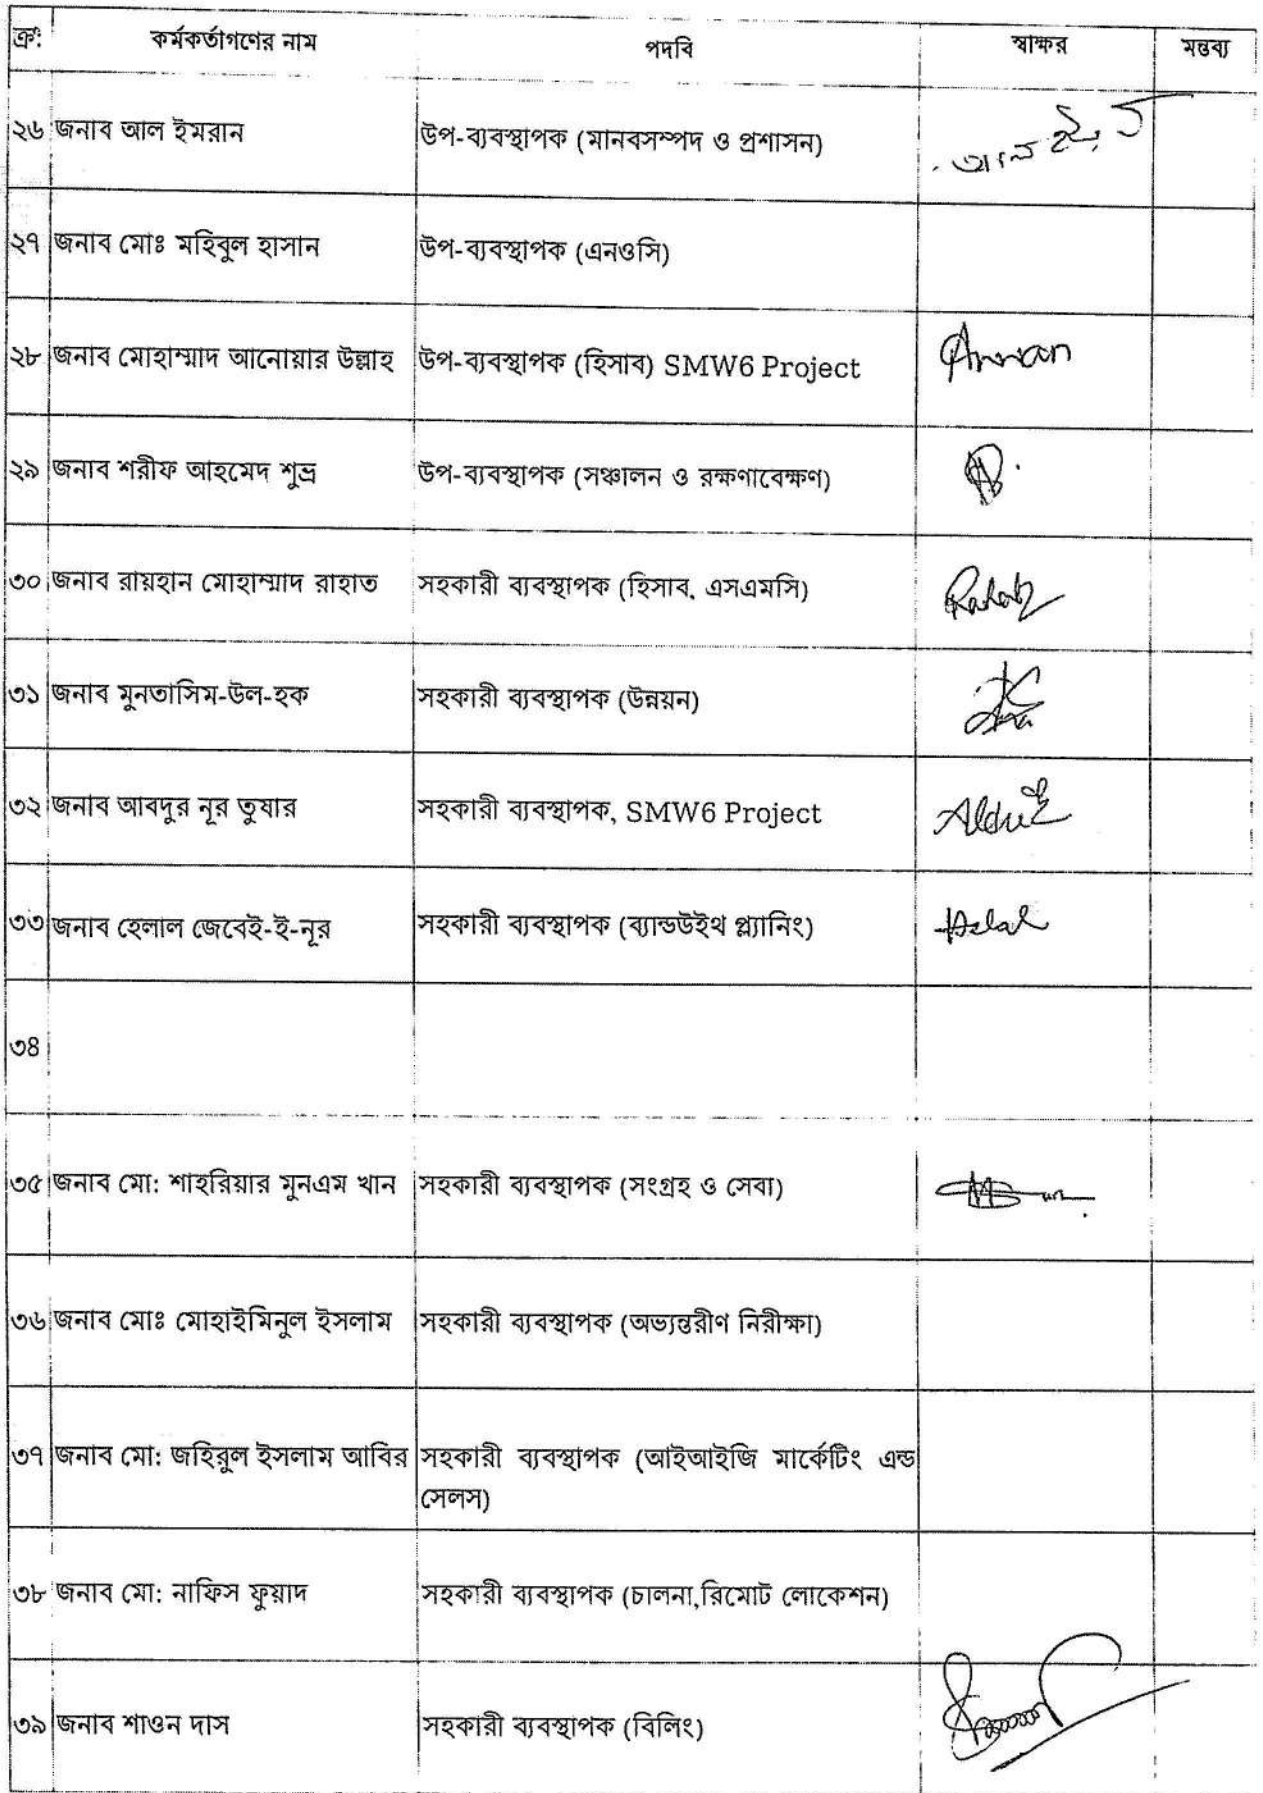 ক্র: কর্মকর্তাগণের নাম পদবি স্বাক্ষর মন্তব্য
২৬ জনাব আল ইমরান উপ-ব্যবস্থাপক (মানবসম্পদ ও প্রশাসন)
২৭ জনাব মোঃ মহিবুল হাসান উপ-ব্যবস্থাপক (এনওসি)
২৮ জনাব মোহাম্মাদ আনোয়ার উল্লাহ উপ-ব্যবস্থাপক (হিসাব) SMW6 Project
২৯ জনাব শরীফ আহমেদ শুভ্র উপ-ব্যবস্থাপক (সঞ্চালন ও রক্ষণাবেক্ষণ)
৩০ জনাব রায়হান মোহাম্মাদ রাহাত সহকারী ব্যবস্থাপক (হিসাব, এসএমসি) Rahat
৩১ জনাব মুনতাসিম-উল-হক সহকারী ব্যবস্থাপক (উন্নয়ন)
৩২ জনাব আবদুর নূর তুষার সহকারী ব্যবস্থাপক, SMW6 Project
৩৩ জনাব হেলাল জেবেই-ই-নূর সহকারী ব্যবস্থাপক (ব্যান্ডউইথ প্ল্যানিং) Helal
৩৪
৩৫ জনাব মো: শাহরিয়ার মুনএম খান সহকারী ব্যবস্থাপক (সংগ্রহ ও সেবা)
৩৬ জনাব মোঃ মোহাইমিনুল ইসলাম সহকারী ব্যবস্থাপক (অভ্যন্তরীণ নিরীক্ষা)
৩৭ জনাব মো: জহিরুল ইসলাম আবির সহকারী ব্যবস্থাপক (আইআইজি মার্কেটিং এন্ড
সেলস)
৩৮ জনাব মো: নাফিস ফুয়াদ সহকারী ব্যবস্থাপক (চালনা,রিমোট লোকেশন)
৩৯ জনাব শাওন দাস সহকারী ব্যবস্থাপক (বিলিং)